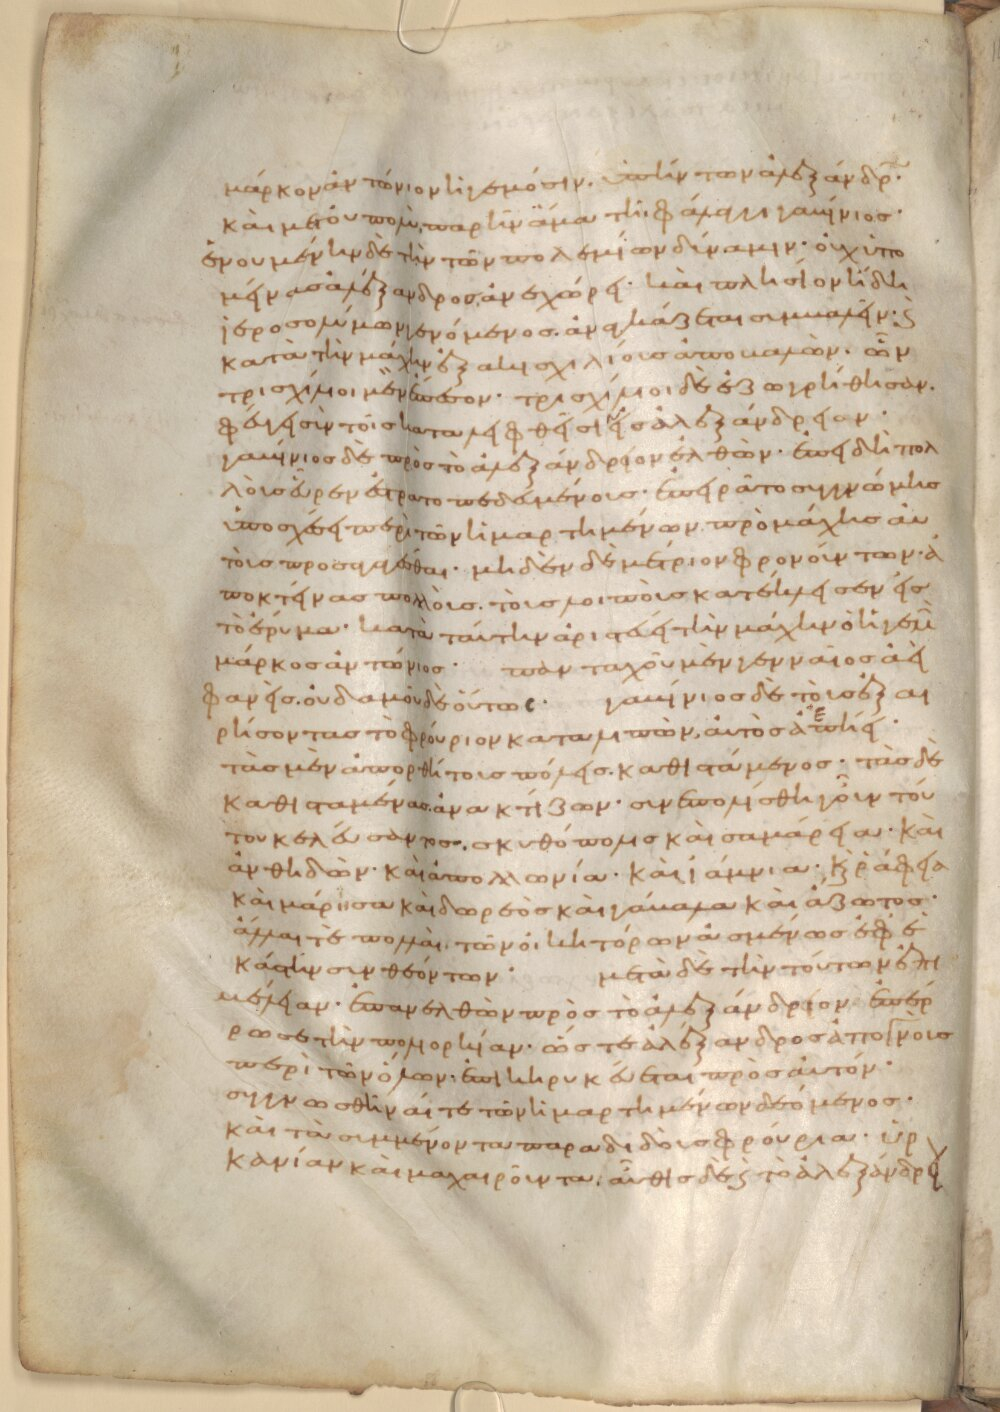 μάρκον ἀντώνιον ἡγεμόσιν. ὑπήντων ἀλεξάνδρ͠·
καὶ μετ οὐ πολὺ, παρῆν ἅμα τῆ φάλαγγι γαβίνιος·
ἑνουμένην δὲ τὴν τῶν πολεμίων δύναμιν· οὐχ ὑπο
μείνασ ἀλέξανδρος, ἀνεχώρει· καὶ πλησίον ἤδη
ἱεροσολύμων γενόμενος. ἀναγκάζεται συμβαλεῖν· ϛ
κατὰ τὴν μάχην ἑξακισχιλίουσ ἀποβαλὼν. ὧν
τρισχίλιοι μὲν ἔπεσον· τρισχίλιοι δὲ ἐζωγρήθησαν.
φεύγει σὺν τοῖς καταλειφθεῖσιν εἰς ἀλεξάνδρειον·
γαβίνιος δὲ πρὸς τὸ ἀλεξάνδρειον ἐλθὼν· ἐπειδὴ πολ
λοὺς εὗρεν ἐστρατοπεδευμένους· ἐπειρᾶτο συγγνώμης
ὑποσχέσει περὶ τῶν ἡμαρτημένων πρὸ μάχης αυ
τοὺς προσάγεσθαι· μηδὲν δὲ μέτριον φρονούντων· ἀ
ποκτείνας πολλοὺς. τοὺς λοιποὺς κατέκλεισεν εἰς
τὸ ἔρυμα· κατὰ ταύτην ἀριστεύει τὴν μάχην ὁ ἡγεμὼν
μάρκοσ ἀντώνιος· πανταχοῦ μὲν γενναῖος ἀεὶ
φανείς. οὐδαμοῦ δὲ οὕτως· γαβίνιος δὲ τοὺς ἐξαι
ρήσοντας τὸ φρούριον καταλιπὼν, αὐτὸς ἀπήει·
τὰσ μὲν ἀπορθήτους πόλεις. καθιστάμενος· τὰς δὲ
καθισταμένας. ἀνακτίζων· συνεπολίσθη γοῦν τού
του κελεύσαντος. σκυθόπολις καὶ σαμάρεια· καὶ
ἀνθηδὼν· καὶ ἀπολλωνία· καὶ ἰάμνια· κ ράφεια
καὶ μάρισσα καὶ δωρεὸς καὶ γάμαλα καὶ ἄζωτος·
ἄλλαι τὲ πολλαὶ, τῶν οἰκητόρων ἀσμένως ἐφ ἑ
κάστην συνθεόντων· μετὰ δὲ τὴν τούτων ἐπι
μέλειαν· ἐπανελθὼν πρὸς τὸ ἀλεξάνδριον ἐπέρ
ρωσε τὴν πολιορκίαν· ὥς τε ἀλέξανδρος ἀπογνοὺς
περὶ τῶν ὅλων· ἐπικηρυκεύεται πρὸς αὐτόν·
συγγνωσθῆναί τε τῶν ἡμαρτημένων δεόμενος·
καὶ τὰ συμμένοντα παραδιδοὺς φρούρια· ὑρ
κανίαν καὶ μαχαιροῦντα, αὖθις δὲ ϛ τὸ ἀλεξάνδρει